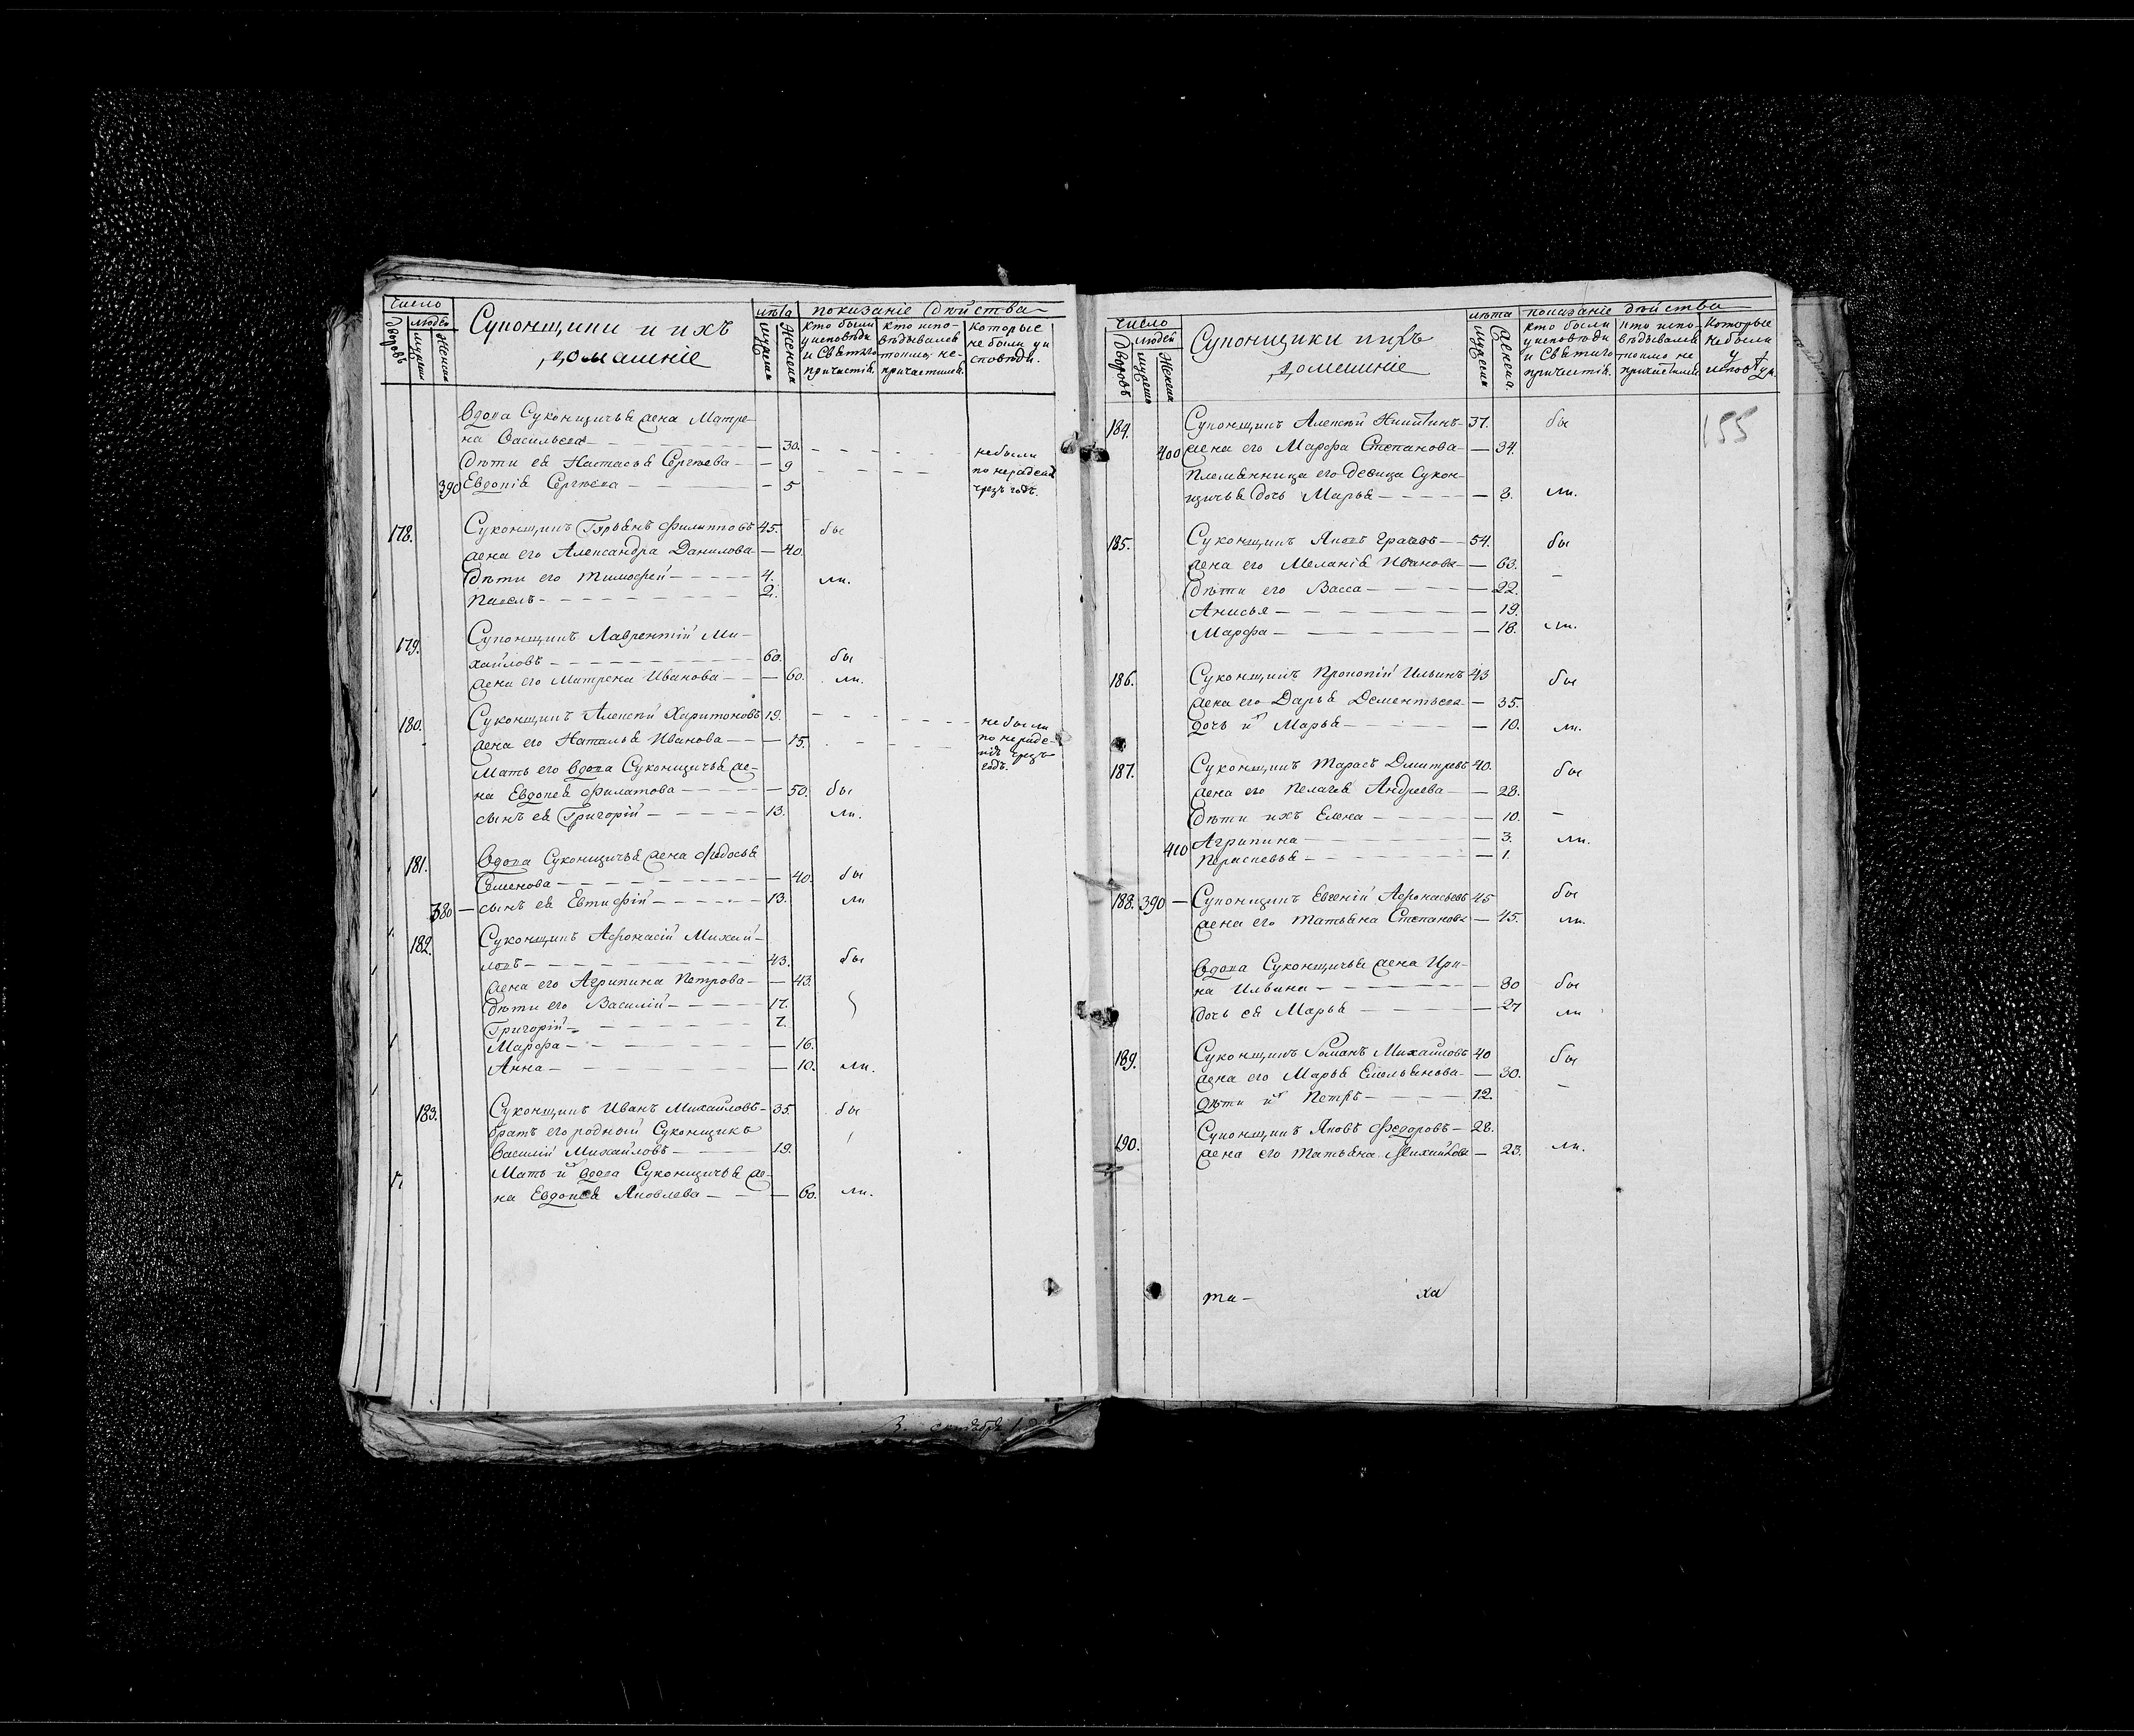 число
дворовъ
людей
мужеска
женска
Суконщики и ихъ
домашніе
лѣта
мужеска
женска
показаніе дѣйства
кто были
у исповѣди
и Святаго
причастія.
кто испо-
вѣдывался
токмо, не-
причастился.
которые
не были у и
сповѣди.
вдова Суконщичья жена Матре-
на Васильева — 30.
дѣти ея Настасья Сергѣева — 9
390 Евдокія Сергѣева — 5
не были
по нерадѣнію
чрезъ годъ.
178. Суконщикъ Гурьянъ Филипповъ 45. бы
жена его Александра Данилова — 40.
дѣти его Тимофей — 4. ли.
Павелъ — 2.
179. Суконщикъ Лаврентій Ми-
хайловъ — 60. бы
жена его Матрена Иванова — 60. ли.
180. Суконщикъ Алексѣй Харитоновъ 19.
жена его Наталья Иванова — 15.
не были
по нераде-
нію чрезъ
годъ.
Мать его вдова Суконщичья же-
на Евдокея Филатова — 50. бы
сынъ ея Григорій — 13. ли.
181. вдова Суконщичья жена Федосья
Семенова — 40. бы
380 — сынъ ея Евтифій — 13. ли
182. Суконщикъ Афонасій Михай-
ловъ — 43. бы
жена его Агрипина Петрова — 43.
дѣти его Василій — 17.
Григорій — 7.
Марфа — 16.
Анна — 10. ли.
183. Суконщикъ Иванъ Михайловъ — 35. бы
братъ его родный Суконщикъ
Василій Михайловъ — 19.
Мать и вдова Суконщичья же-
на Евдокея Яковлева — 60. ли.
число
дворовъ
людей
мужеска
женска
Суконщики и ихъ
домашніе
лѣта
мужеска
женска.
показаніе дѣйства
кто были
у исповѣди
и Святаго
причастія.
кто испо-
вѣдывался
токмо не
причастился
которые
не были
у
исповѣди.
155
184. Суконщикъ Алексѣй Никитинъ — 37. бы
400 жена его Марфа Степанова — 34.
племянница его девица Сукон-
щичья дочь Марья — 8. ли.
185. Суконщикъ Яковъ — 54. бы
жена его Меланія Иванова — 63.
дѣти его Васса — 22.
Анисья — 19.
Марфа — 18. ли.
186. Суконщикъ Прокопій Ильинъ 43 бы
жена его Дарья Дементьева — 35.
дочь их Марья — 10. ли.
187. Суконщикъ Тарасъ Дмитревъ 40. бы
жена его Пелагея Андреева — 28.
дѣти ихъ Елена — 10.
Агрипина — 3. ли.
410 Парасковья — 1.
188. 390 — Суконщикъ Евгеній Афонасьевъ 45 бы
жена его Татьяна Степанова — 45. ли.
вдова Суконщичья жена Ири-
на Ильина — 80 бы
дочь ея Марья — 27 ли
189. Суконщикъ Романъ Михайловъ 40 бы
жена его Марья Емельянова — 30.
дѣти их Петръ — 12.
190. Суконщикъ Яковъ Федоровъ — 28.
жена его Татьяна Михайлова — 23. ли.
та— ха